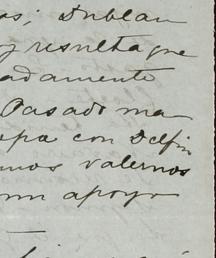 os; Dublan
y resulta que
adamente
Pasado ma
apa con Delfin
mos valernos
un apoyo